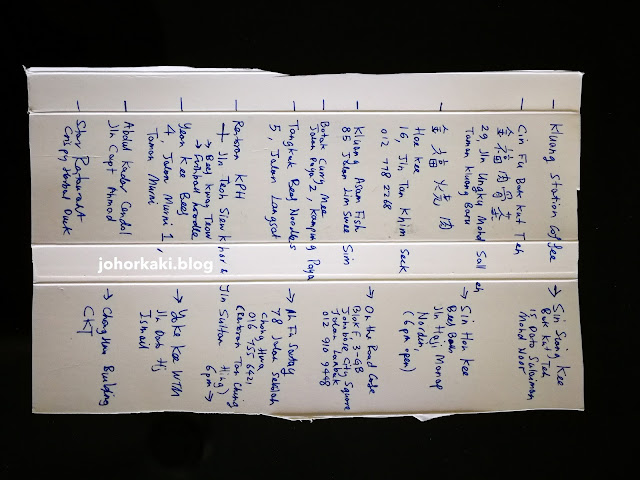 - Kluang Station Coffee
- Cin Fu Bak Kut Teh
金福肉骨茶
29, Jln Ungku Mohd Salleh
Taman Kluang Baru
金福 烧肉
Hoe Kee
16, Jln Tan Khim Seck
012 778 2268
- Kluang Asam Fish
85 Jalan Lim Swee Sim
- Botak Curry Mee
Jalan Paya 2, Kampung Paya
- Tangkak Beef Noodles
5, Jalan Langsat
- Restoran KPH
+ Jln Teoh Siew Khor & Jln Sultan
→ Beef Kway Teow
→ Fishball Noodle
Yean Kee Beef
4, Jalan Murni 1,
Taman Murni
- Abdul Kadar Cendol
Jln Capt Ahmad
- Star Restaurant
Crispy Herbal Duck
→ Sin Seong Kee
Bak Kut Teh
15 Dato Sulaiman,
Mohd Noor
→ Sin Hoi Kee
Beef
Jln Haji Manap
Nordin
(6pm open)
→ On the Road Cafe
Block F, 3-GB
Johnhore City Square
Jalan Lambak
012 910 9448
→ Ah Fu Satay
78 Jalan Sekolah
Chong Hwa
016 755 6421
(Restoran Tan Ching
Hing)
6pm →
→ Yoke Kee WTM
Jln Dato Hj
Ismail
→ Building
CKT
johorkaki.blog